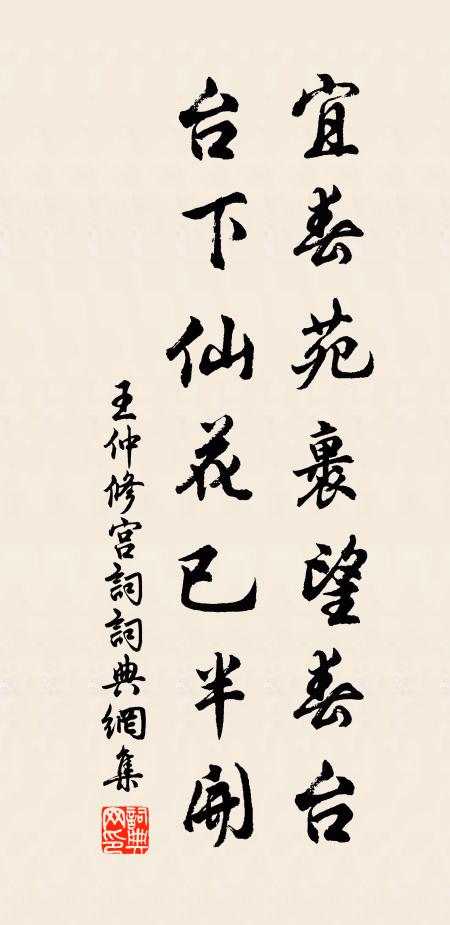 宜春苑裏望春台
台下仙花已半開
王仲修宮詞詞典網集
詞典网印